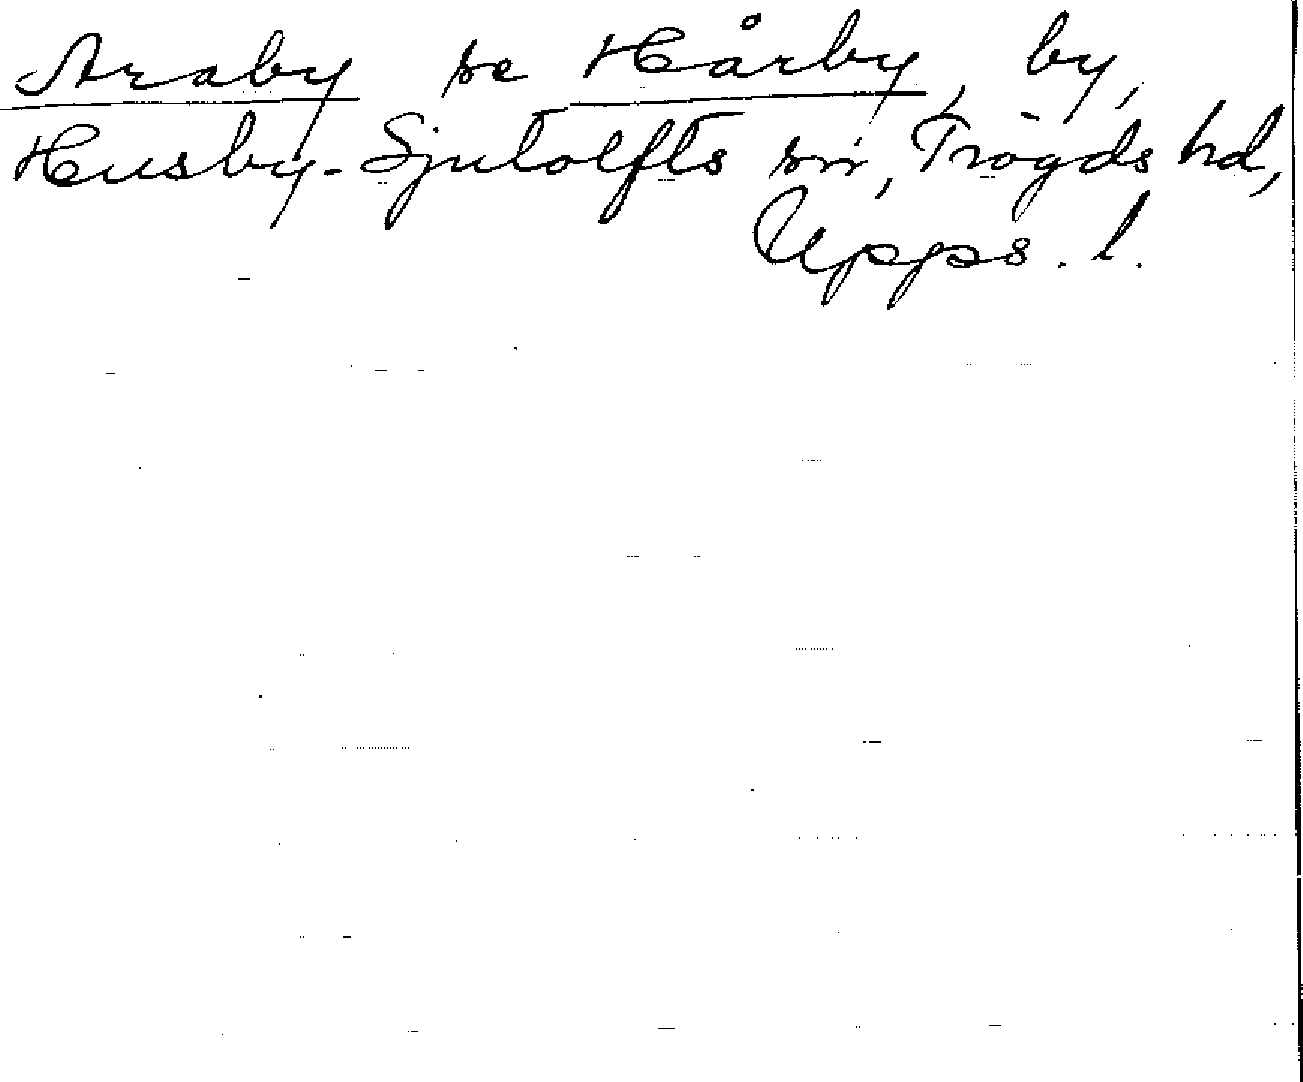 Araby se Hårby, by,
Husby-Sjutolfts sn, Trögds hd,
Upps. l.